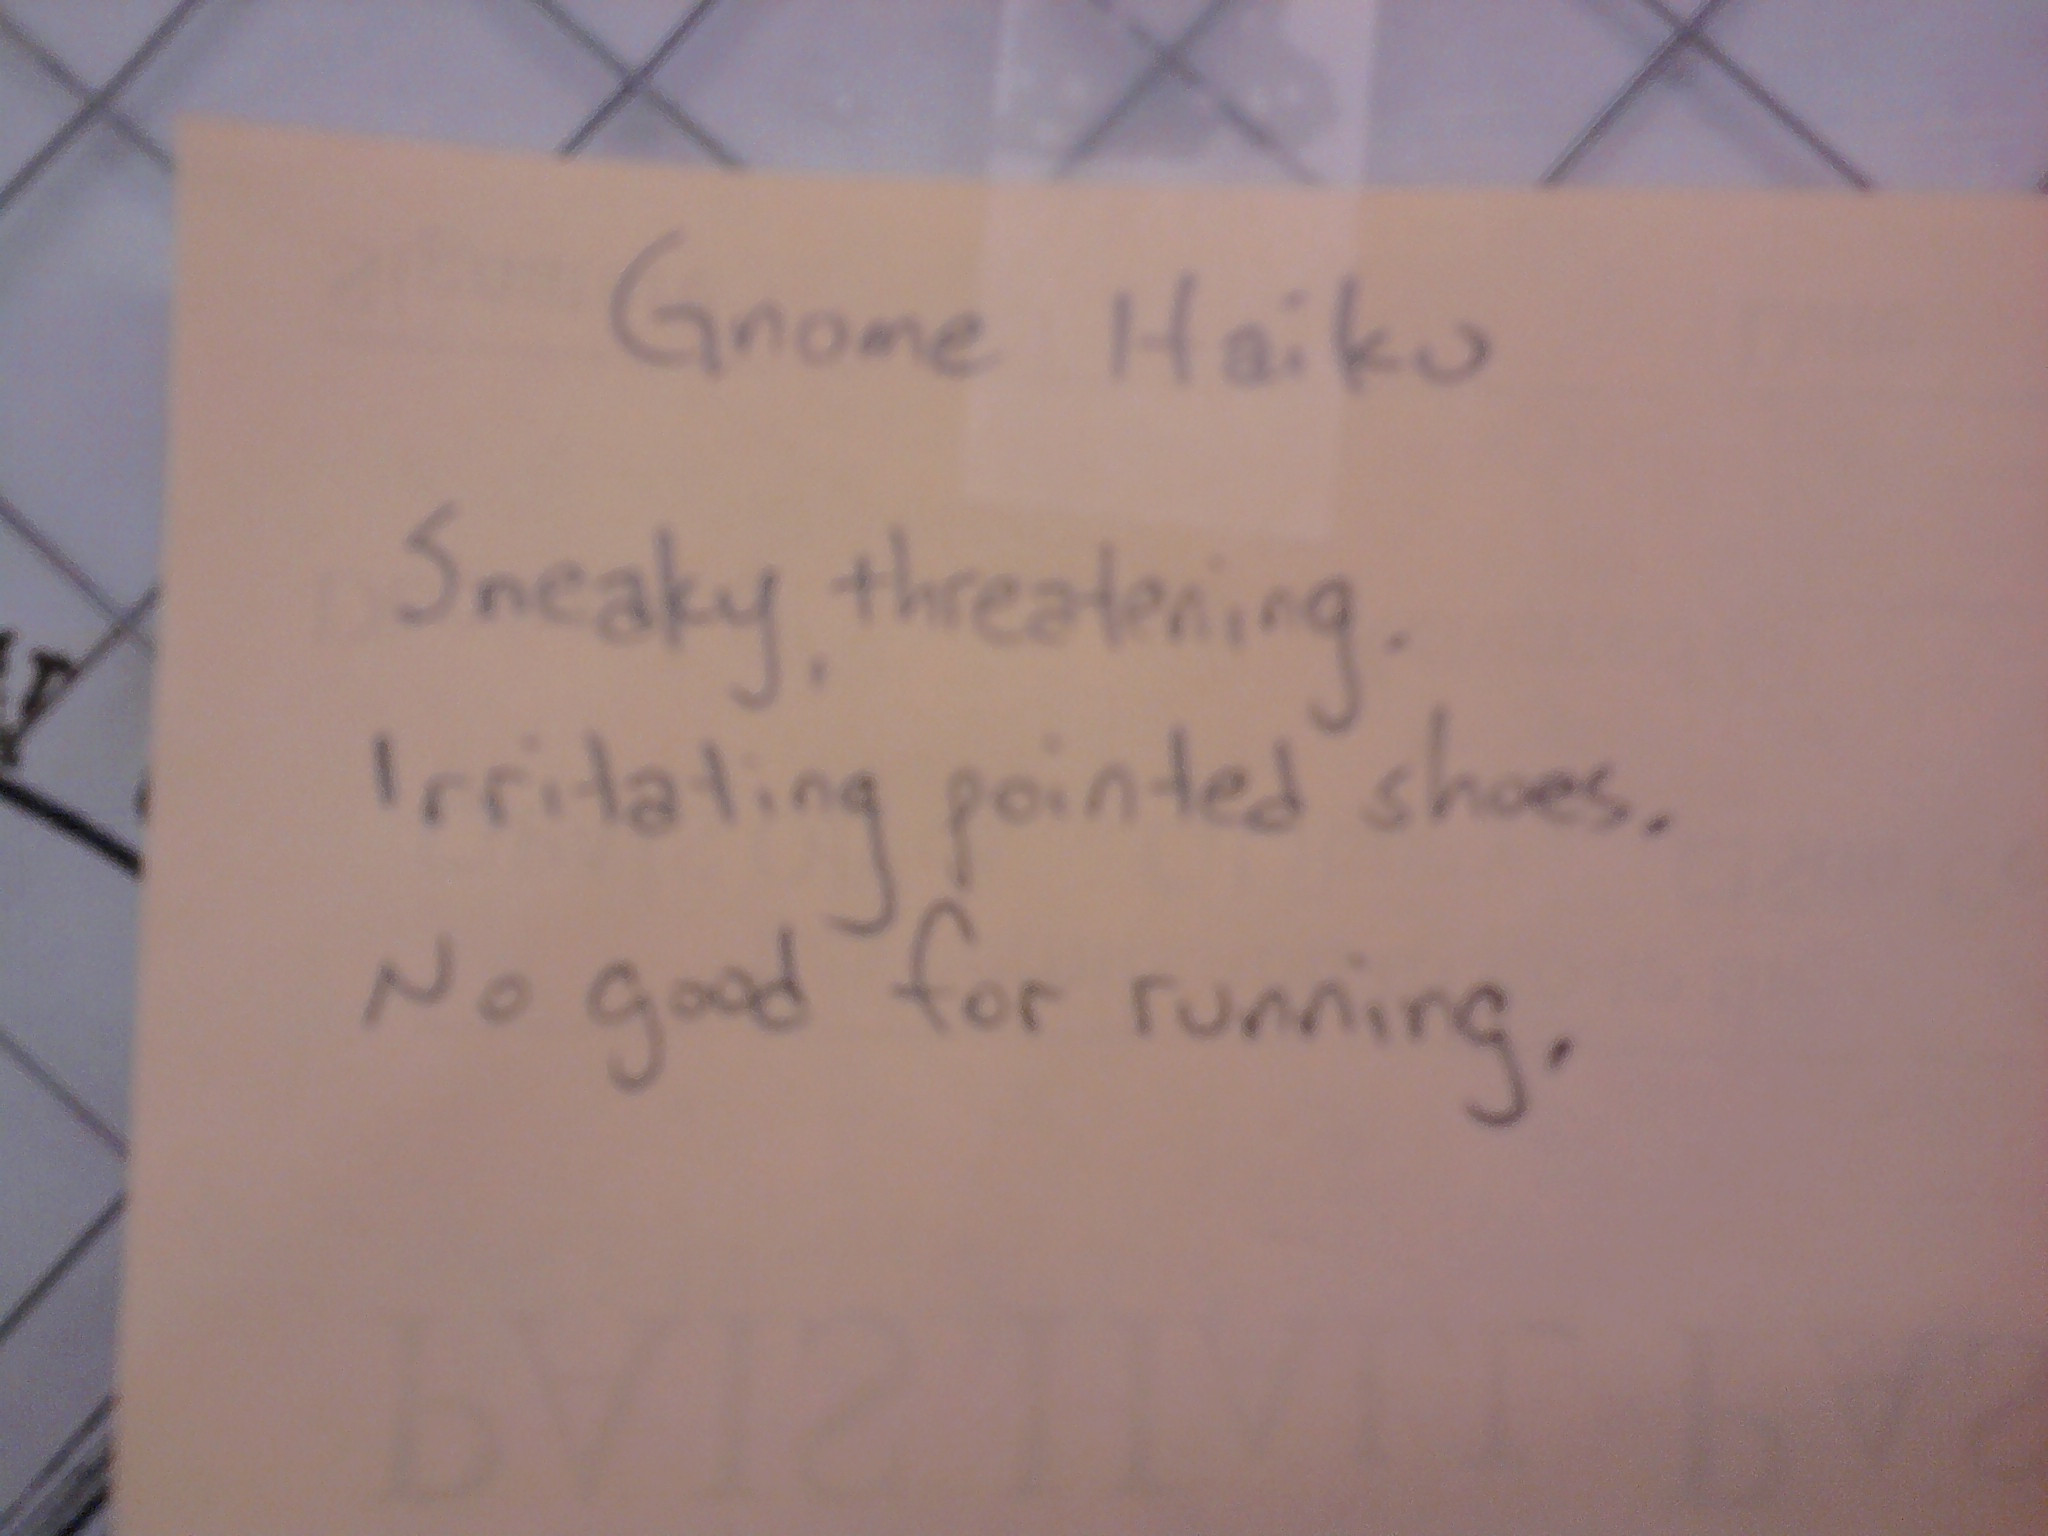 Gnome Haiku
Sneaky, threatening.
Irritating pointed shoes.
No good for running.